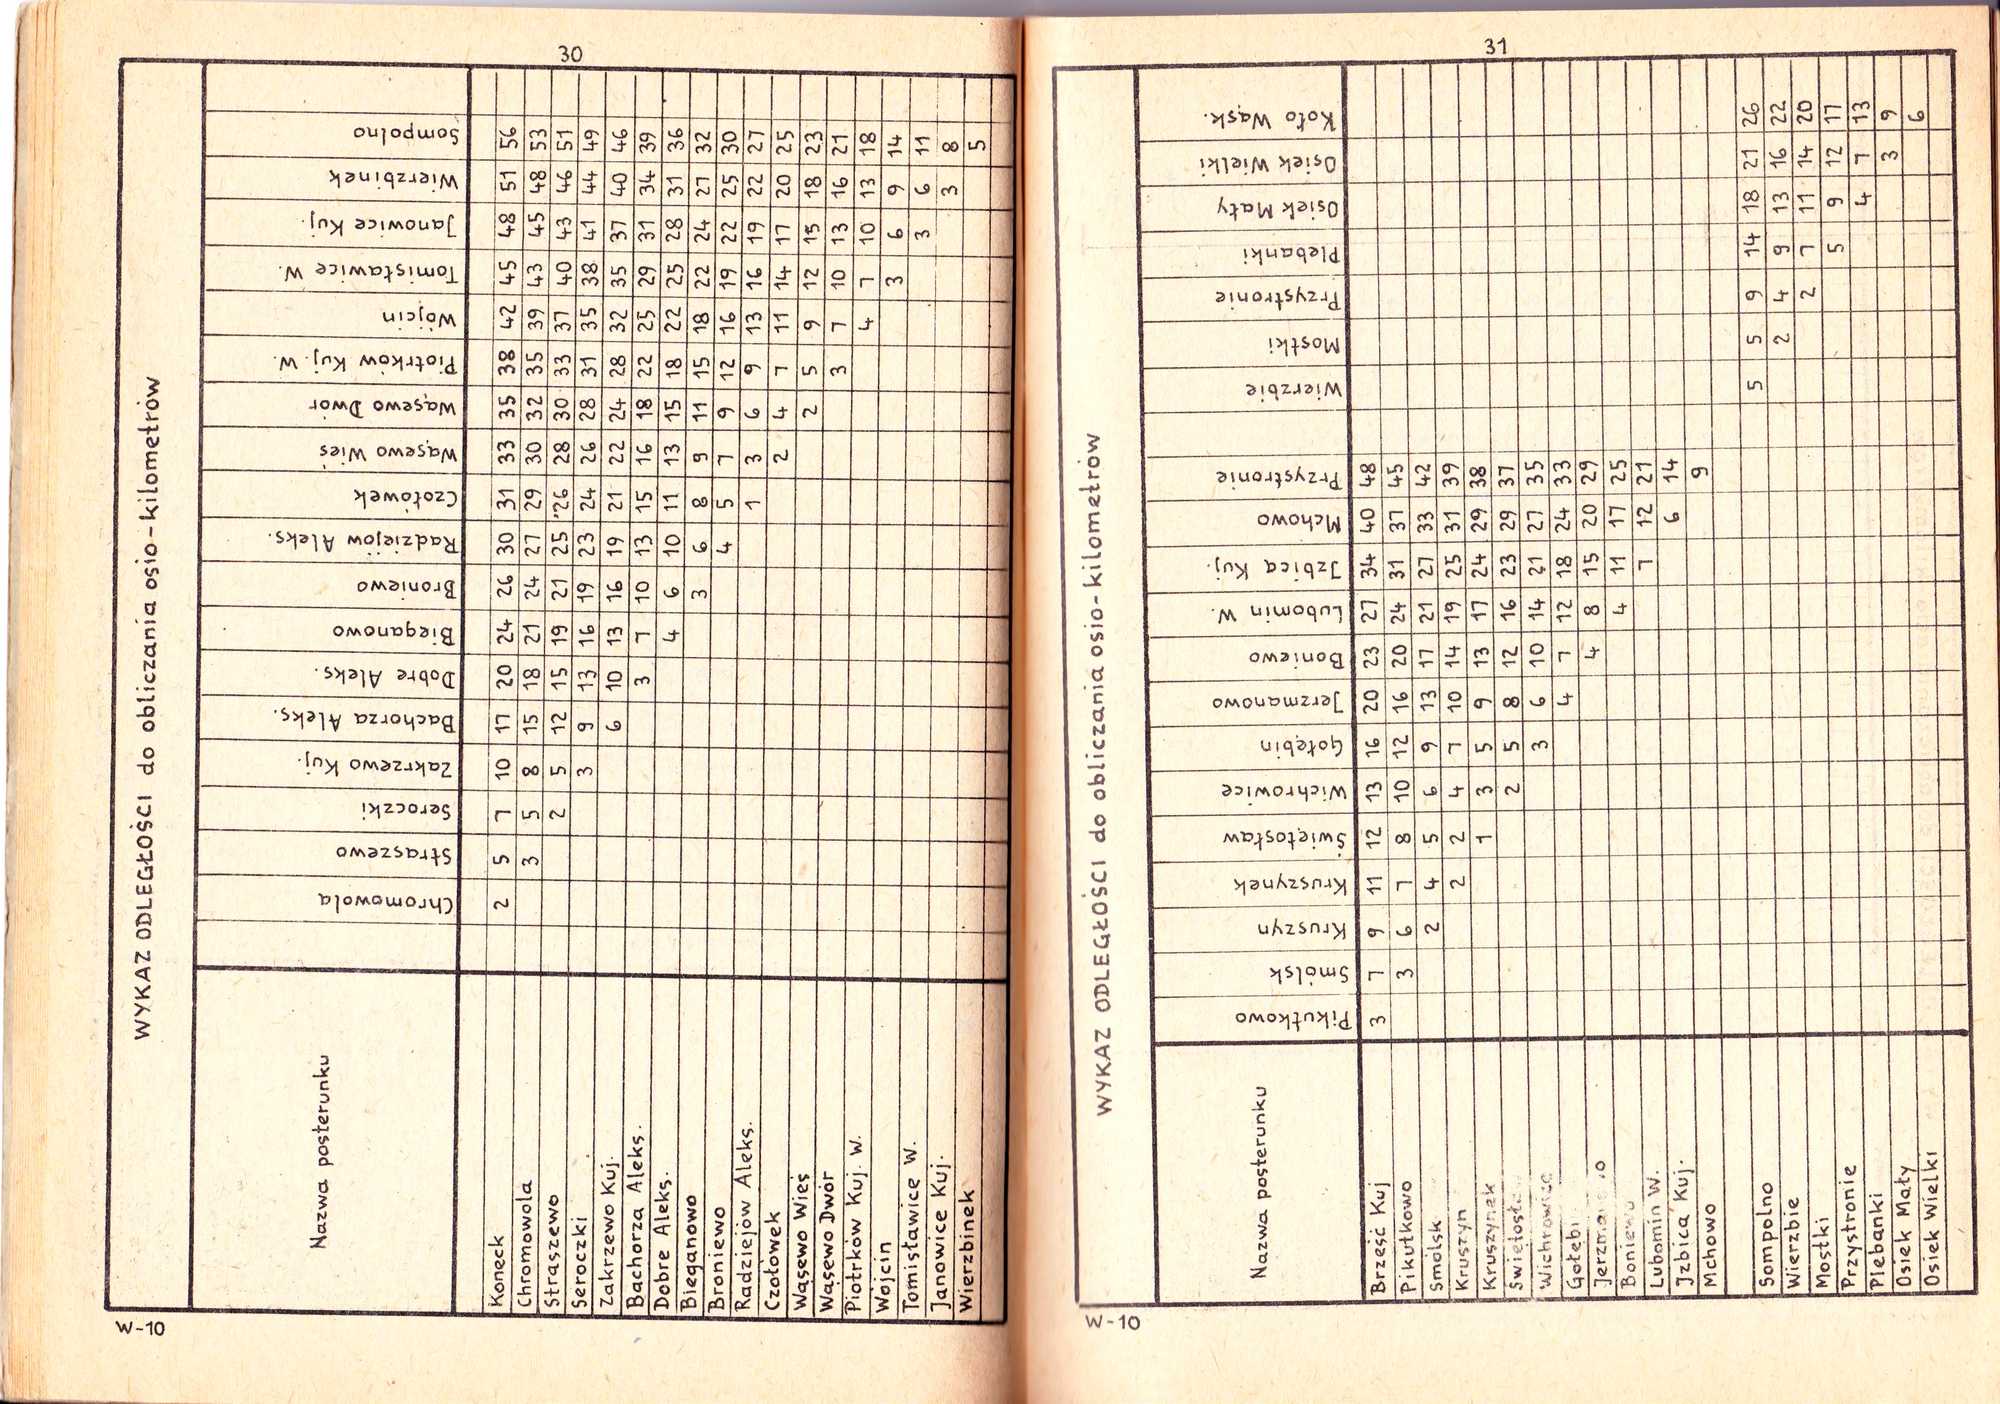 30
WYKAZ ODLEGŁOŚCI do obliczania osio-kilometrów
Nazwa posterunku
Chromowola
Straszewo
Seroczki
Zakrzewo Kuj.
Bachorza Aleks.
Dobre Aleks.
Bieganowo
Broniewo
Radziejów Aleks.
Czołówek
Wąsewo Wieś
Wąsewo Dwór
Piotrków Kuj. W.
Wójcin
Tomisławice W.
Janowice Kuj.
Wierzbinek
Sompolno
Koneck 2 5 7 10 17 20 24 26 30 31 33 35 38 42 45 48 51 56
Chromowola 3 5 8 15 18 21 24 27 29 30 32 35 39 43 45 48 53
Straszewo 2 5 12 15 19 21 25 26 28 30 33 37 40 43 46 51
Seroczki 3 9 13 16 19 23 24 26 28 31 35 38 41 44 49
Zakrzewo Kuj. 6 10 13 16 19 21 22 24 28 32 35 37 40 46
Bachorza Aleks. 3 7 10 13 15 16 18 22 25 29 31 34 39
Dobre Aleks. 4 6 10 11 13 15 18 22 25 28 31 36
Bieganowo 3 6 8 9 11 15 18 22 24 27 32
Broniewo 4 5 7 9 12 16 19 22 25 30
Radziejów Aleks. 1 3 6 9 13 16 19 22 27
Czołówek 2 4 7 11 14 17 20 25
Wąsewo Wieś 2 5 9 12 15 18 23
Wąsewo Dwór 3 7 10 13 16 21
Piotrków Kuj. W. 4 7 10 13 18
Wójcin 3 6 9 14
Tomisławice W. 3 6 11
Janowice Kuj. 3 8
Wierzbinek 5
W-10
31
WYKAZ ODLEGŁOŚCI do obliczania osio-kilometrów
Nazwa posterunku
Pikutkowo
Smólsk
Kruszyn
Kruszynek
Świętosław
Wichrowice
Gołębin
Jerzmanowo
Boniewo
Lubomin W.
Izbica Kuj.
Mchowo
Przystronie
Wierzbie
Mostki
Przystronie
Plebanki
Osiek Mały
Osiek Wielki
Koło Wąsk.
Brześć Kuj 3 7 9 11 12 13 16 20 23 27 34 40 48
Pikutkowo 3 6 7 8 10 12 16 20 24 31 37 45
Smólsk 2 4 5 6 9 13 17 21 27 33 42
Kruszyn 2 2 4 7 10 14 19 25 31 39
Kruszynek 1 3 5 9 13 17 24 29 38
Świętosław 2 5 8 12 16 23 29 37
Wichrowice 3 6 10 14 21 27 35
Gołębin 4 7 12 18 24 33
Jerzmanowo 4 8 15 20 29
Boniewo 4 11 17 25
Lubomin W. 7 12 21
Izbica Kuj. 6 14
Mchowo 9
Sompolno 5 5 9 14 18 21 26
Wierzbie 2 4 9 13 16 22
Mostki 2 7 11 14 20
Przystronie 5 9 12 17
Plebanki 4 7 13
Osiek Mały 3 9
Osiek Wielki 6
W-10